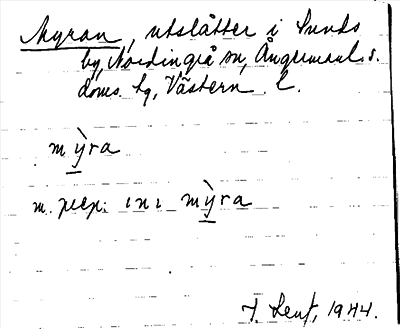 Myran, utslåtter i Sunds
by, Nordingrå sn, Ångermanl. s.
doms. hg, Västern. l.
mỳra
m. prep. ını mỳra
J. Lenf, 1944.